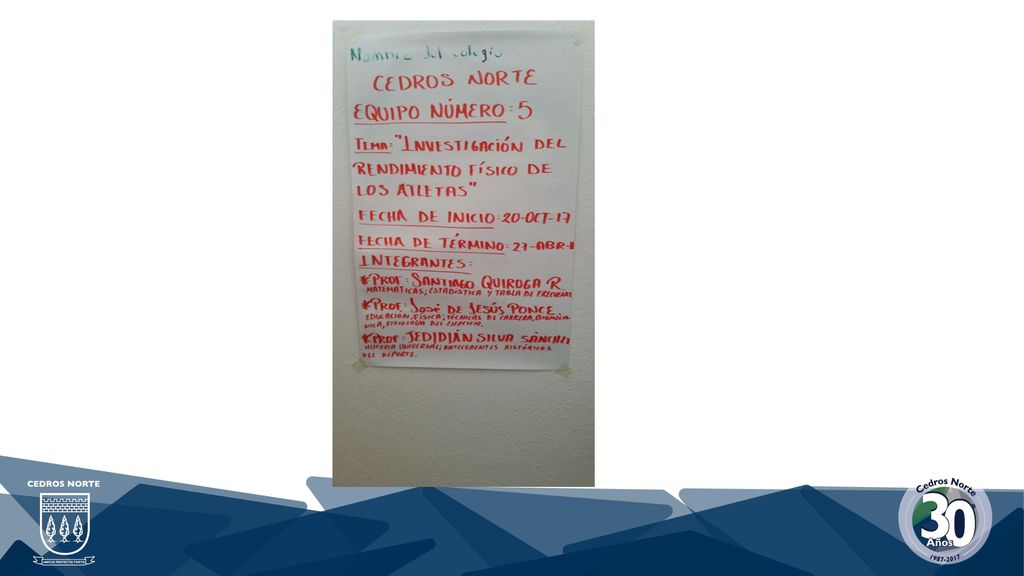 Nombre del colegio
CEDROS NORTE
EQUIPO NÚMERO: 5
TEMA: "INVESTIGACIÓN DEL
RENDIMIENTO FÍSICO DE
LOS ATLETAS"
FECHA DE INICIO: 20-OCT-17
FECHA DE TÉRMINO: 27-ABR-1
INTEGRANTES:
*PROF: SANTIAGO QUIROGA R.
MATEMATICAS; ESTADÍSTICA Y TABLA DE FRECUENC
*PROF: JOSÉ DE JESÚS PONCE.
EDUCACION FÍSICA; TÉCNICAS DE CARRERA, BIOMECA-
NICA, FISIOLOGIA DEL EJERCICIO.
*PROF: JEDIDIÁN SILVA SÁNCHEZ
HISTORIA UNIVERSAL; ANTECEDENTES HISTÓRICOS
DEL DEPORTE.
CEDROS NORTE
Cedros Norte
30
Años
1987-2017